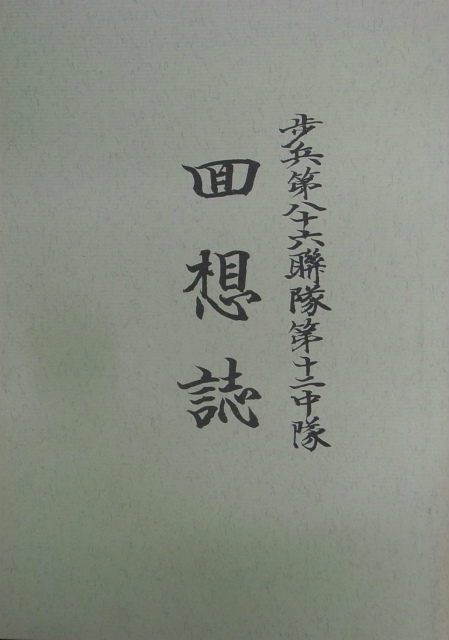 歩兵第八十六聯隊第十二中隊
回想誌